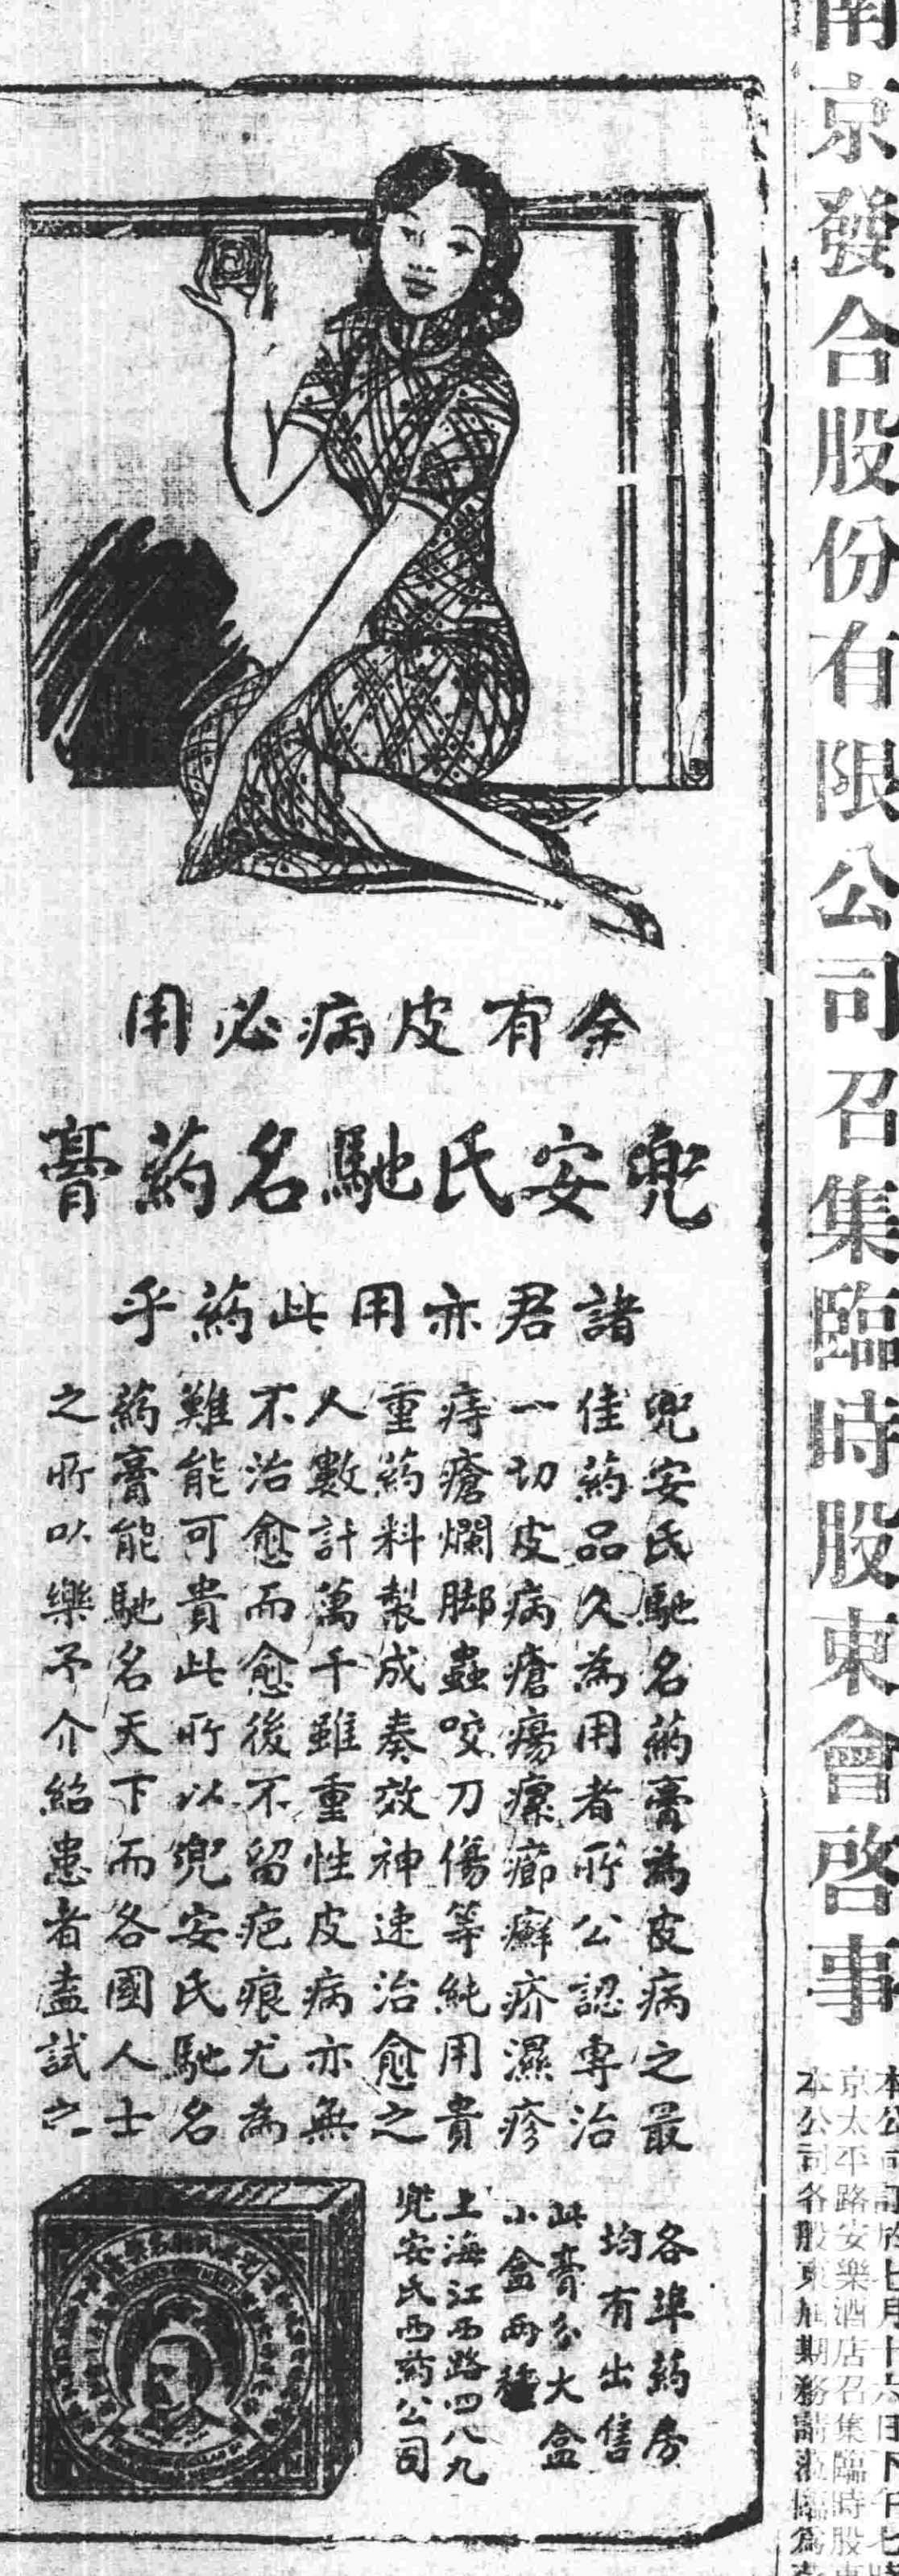 南京發合股份有限公司召集臨時股東會啓事
京太平路安樂酒店召集臨時股
余有皮病必用
兜安氏馳名葯膏
諸君亦用此葯乎
兜安氏馳名葯膏為皮病之最
佳葯品久為用者所公認專治
一切皮病瘡瘍瘰癤癬疥濕疹
痔瘡爛脚蟲咬刀傷等純用貴
重葯料製成奏效神速治愈之
人數計萬千雖重性皮病亦無
不治愈而愈後不留疤痕尤為
難能可貴此所以兜安氏馳名
葯膏能馳名天下而各國人士
之所以樂予介紹患者盍試之
各埠葯房
均有出售
此膏分大盒
小盒兩種
上海江西路四八九
兜安氏西葯公司